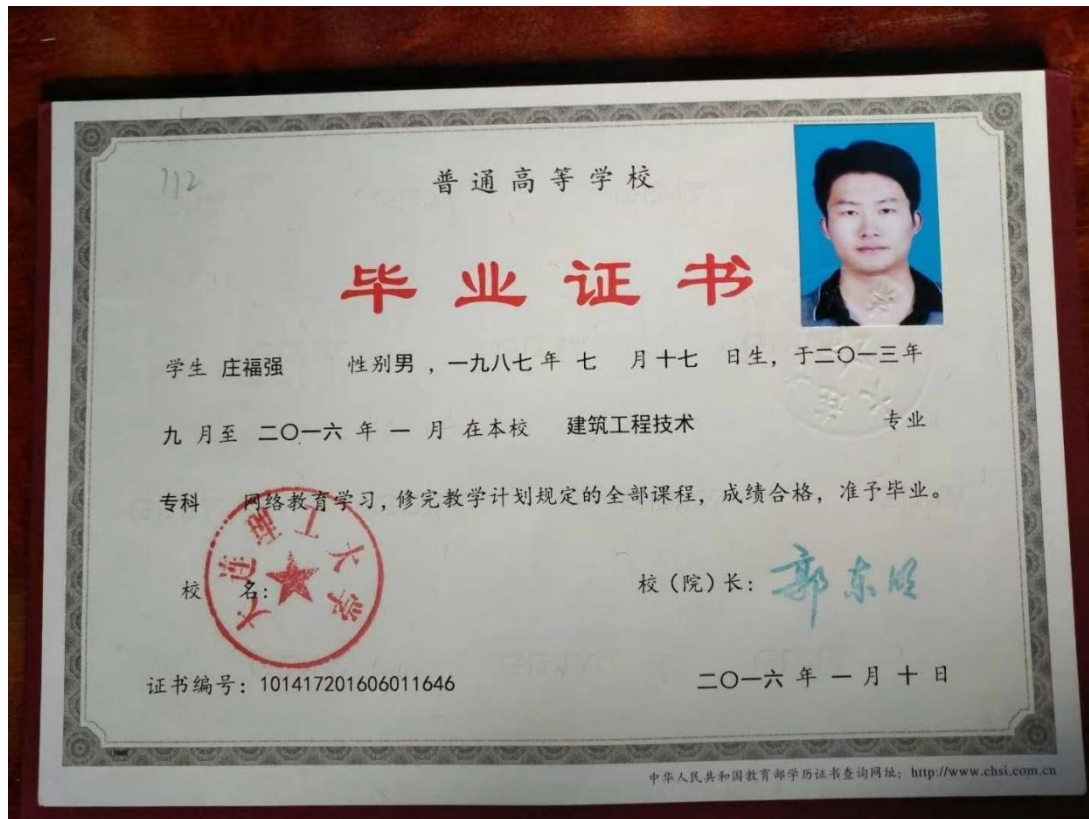 112
普通高等学校
毕业证书
学生 庄福强 性别男 ，一九八七年 七 月十七 日生，于二〇一三年
九 月至 二〇一六 年 一 月 在本校 建筑工程技术 专业
专科 网络教育学习，修完教学计划规定的全部课程，成绩合格，准予毕业。
大连理工大学
校 名： 校（院）长：郭东明
证书编号：101417201606011646 二〇一六 年 一 月 十 日
中华人民共和国教育部学历证书查询网址：http://www.chsi.com.cn